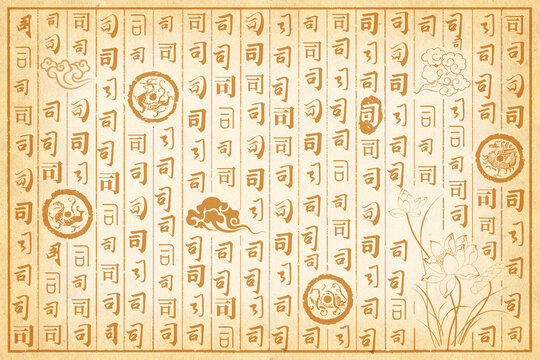 司司司司司司司司司司
司司司司司司司司司司
司司司司司司
司司司司司
司司司司司司司司司司司
司司司司司司司司司司司司
司司司司司司司司司司
司司司司司司司司司司
司司司司司司司司司司司司
司司司司司司司司司司司
司司司司司司司司司司
司司司司司司司司司司
司司司司司司司司司司
司司司司司司司司司司
司司司司司司司司司司司司
司司司司司司司司司
司司司司司司司司司
司司司司司司司司司司司司